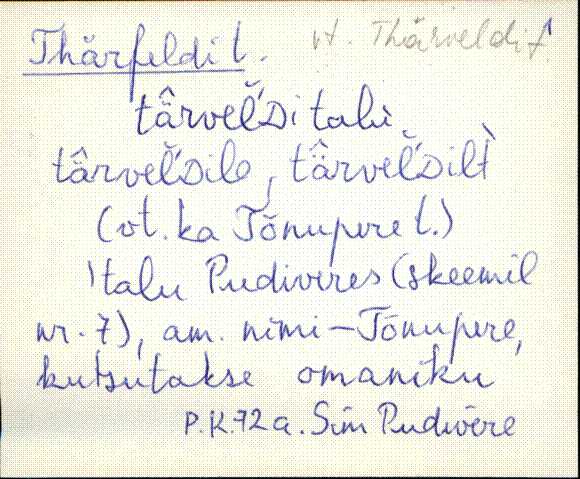 Thärfeldi t. vt. Thärveldi t
tä̂rveľ̆ᴅi talu
tä̂rveľ̆ᴅile, tä̂rveľ̆ᴅilt
(vt. ka Tõnupere t.)
'talu Pudiveres (skeemil
nr. 7), am. nimi – Tõnupere,
kutsutakse omaniku
P.K. 72 a. Sim Pudivere